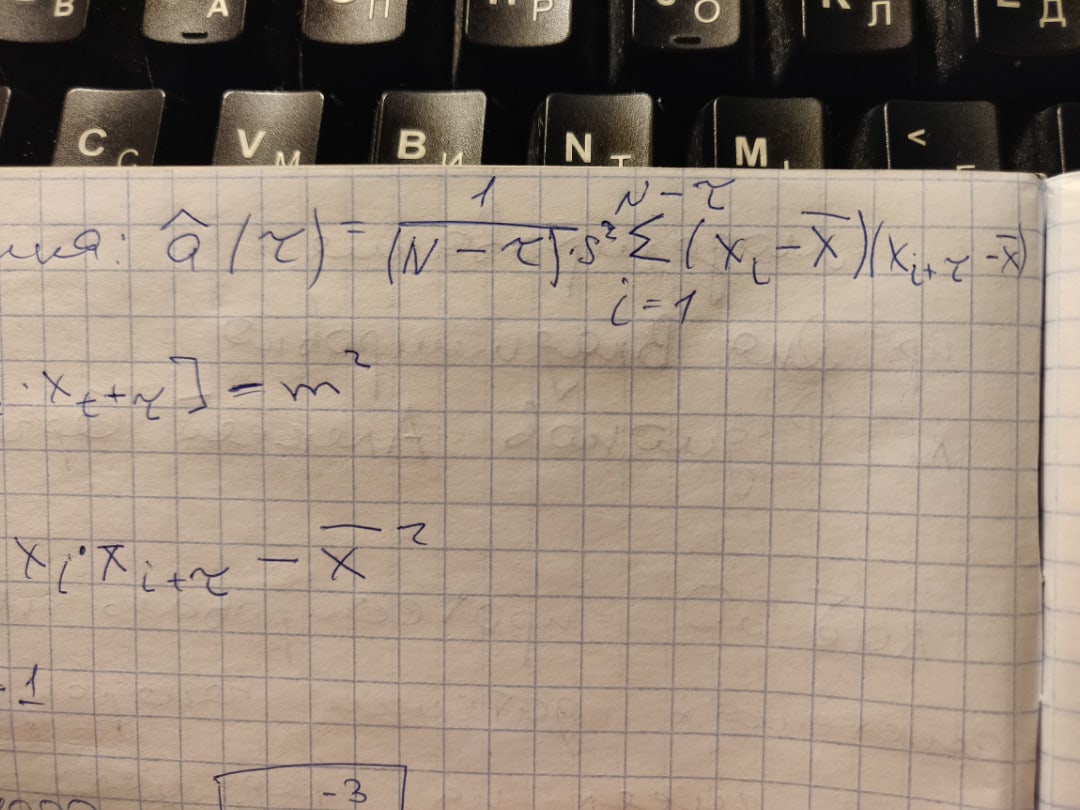 В А П Р О Л Д
C С V М B И N Т M <
â(τ) = 1/((N-τ)·S²) Σ_{i=1}^{N-τ} (x_i - x̄)(x_{i+τ} - x̄)
· x_{t+τ}] = m²
x_i · x_{i+τ} - x̄²
1
-3